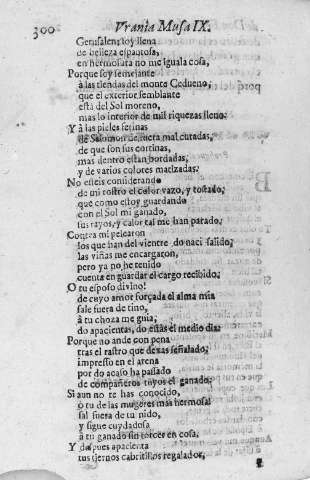 300 Vrania Musa IX.
Gerusalen: soy llena
de belleza espantosa,
en hermosura no me iguala cosa,
Porque soy semejante
à las tiendas del monte Cedueno;
que el exterior semblante
està del Sol moreno,
mas lo interior de mil riquezas lleno.
Y à las pieles ferinas
de Salomon de fuera mal curadas,
de que son sus cortinas,
mas dentro estàn bordadas,
y de varios colores matizadas.
No esteis considerando
de mi rostro el color vazo, y tostado,
que como estoy guardando
con el Sol mi ganado,
sus rayos, y calor tal me han parado.
Contra mi pelearon
los que han del vientre do naci salido;
las viñas me encargaron,
pero ya no he tenido
cuenta en guardar el cargo recibido;
O tu esposo divino!
de cuyo amor forçada el alma mia
sale fuera de tino,
à tu choza me guia;
do apacientas, do estàs el medio dia:
Porque no ande con pena
tras el rastro que dexas señalado;
impresso en el arena
por do acaso ha passado
de compañeros tuyos el ganado;
Si aun no te has conocido,
ò tu de las mugeres mas hermosa!
sal fuera de tu nido,
y sigue cuydadosa
à tu ganado sin torcer en cosa,
Y despues apacienta
tus tiernos cabritillos regalados,